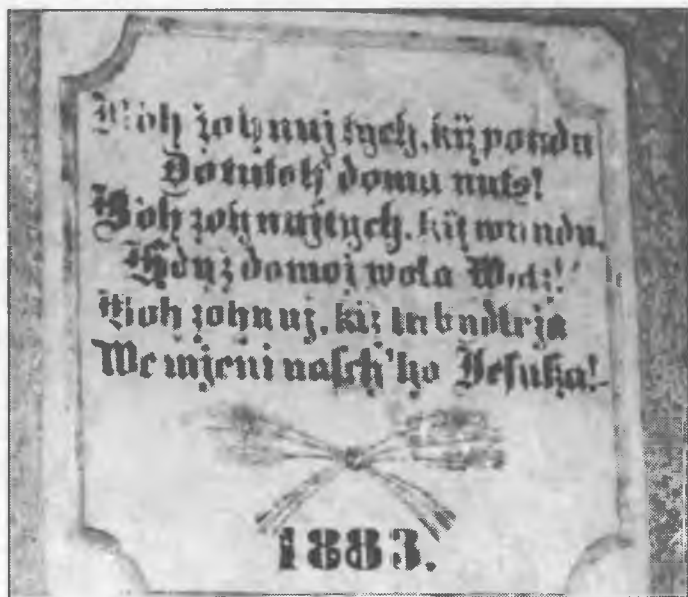 Boh žohnuj tych, kiž pondu
Do tutoh' doma nuts!
Boh žohnuj tych, kiž wundu,
Hdyž domoj woła Wótz!
Boh žohnuj, kiž tu bydleja
We mjeni nasch'ho Jesusa!
1883.